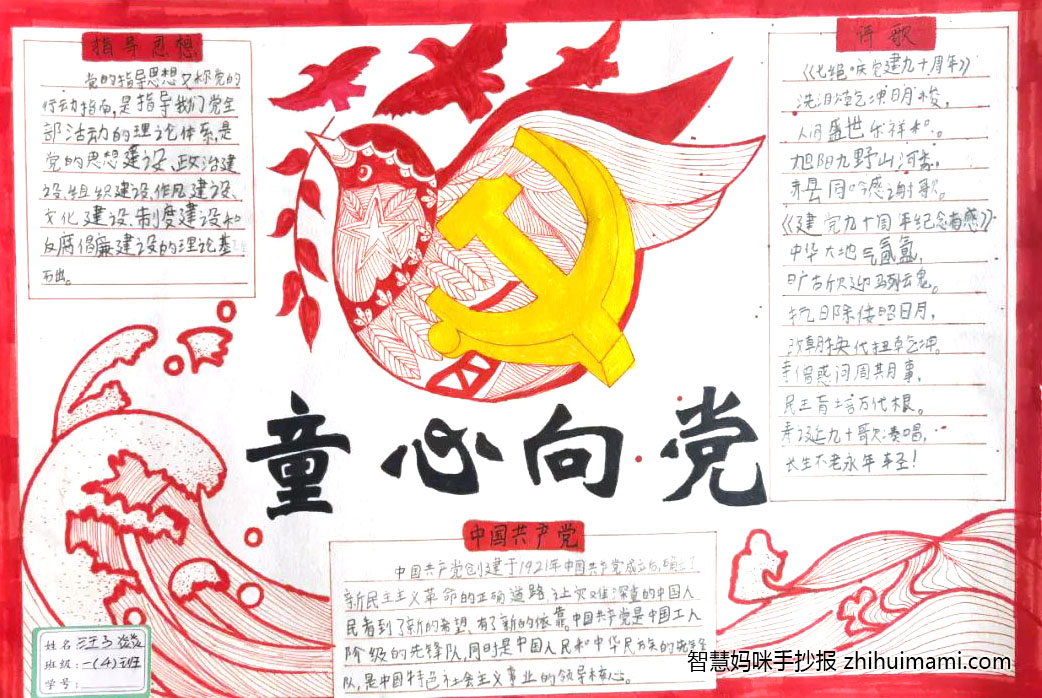 指导思想
党的指导思想又称党的
行动指南,是指导我们党全
部活动的理论体系,是
党的思想建设、政治建
设、组织建设、作风建设、
文化建设、制度建设和
反腐倡廉建设的理论基
石出。
童心向党
中国共产党
中国共产党创建于1921年中国共产党成立后,
新民主主义革命的正确道路,让灾难深重的中国人
民看到了新的希望、有了新的依靠。中国共产党是中国工人
阶级的先锋队,同时是中国人民和中华民族的先锋
队,是中国特色社会主义事业的领导核心。
诗歌
《七绝·庆党建九十周年》
洗泪乾坤日月梭,
人间盛世乐祥和。
旭阳九野山河秀,
赤县同吟感谢歌。
《建党九十周年纪念有感》
中华大地气氤氲,
旷古欣迎马列魂。
抗日除倭昭日月,
改朝换代扭乾坤。
民主育培万代根。
寿诞九十歌凑唱,
长生不老永年轻!
姓名:
班级:一(4)班
学号:
智慧妈咪手抄报 zhihuimami.com